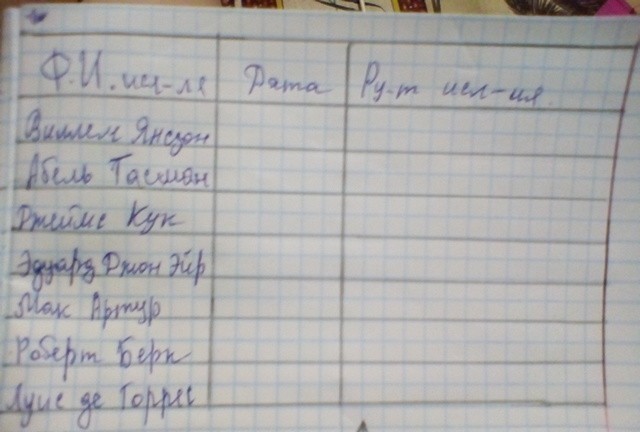 Ф.И. исл-ля Дата Ру-т исл-ия
Виллем Янсзон
Абель Тасман
Джеймс Кук
Эдуард Джон Эйр
Мак Артур
Роберт Берк
Луис де Торрес